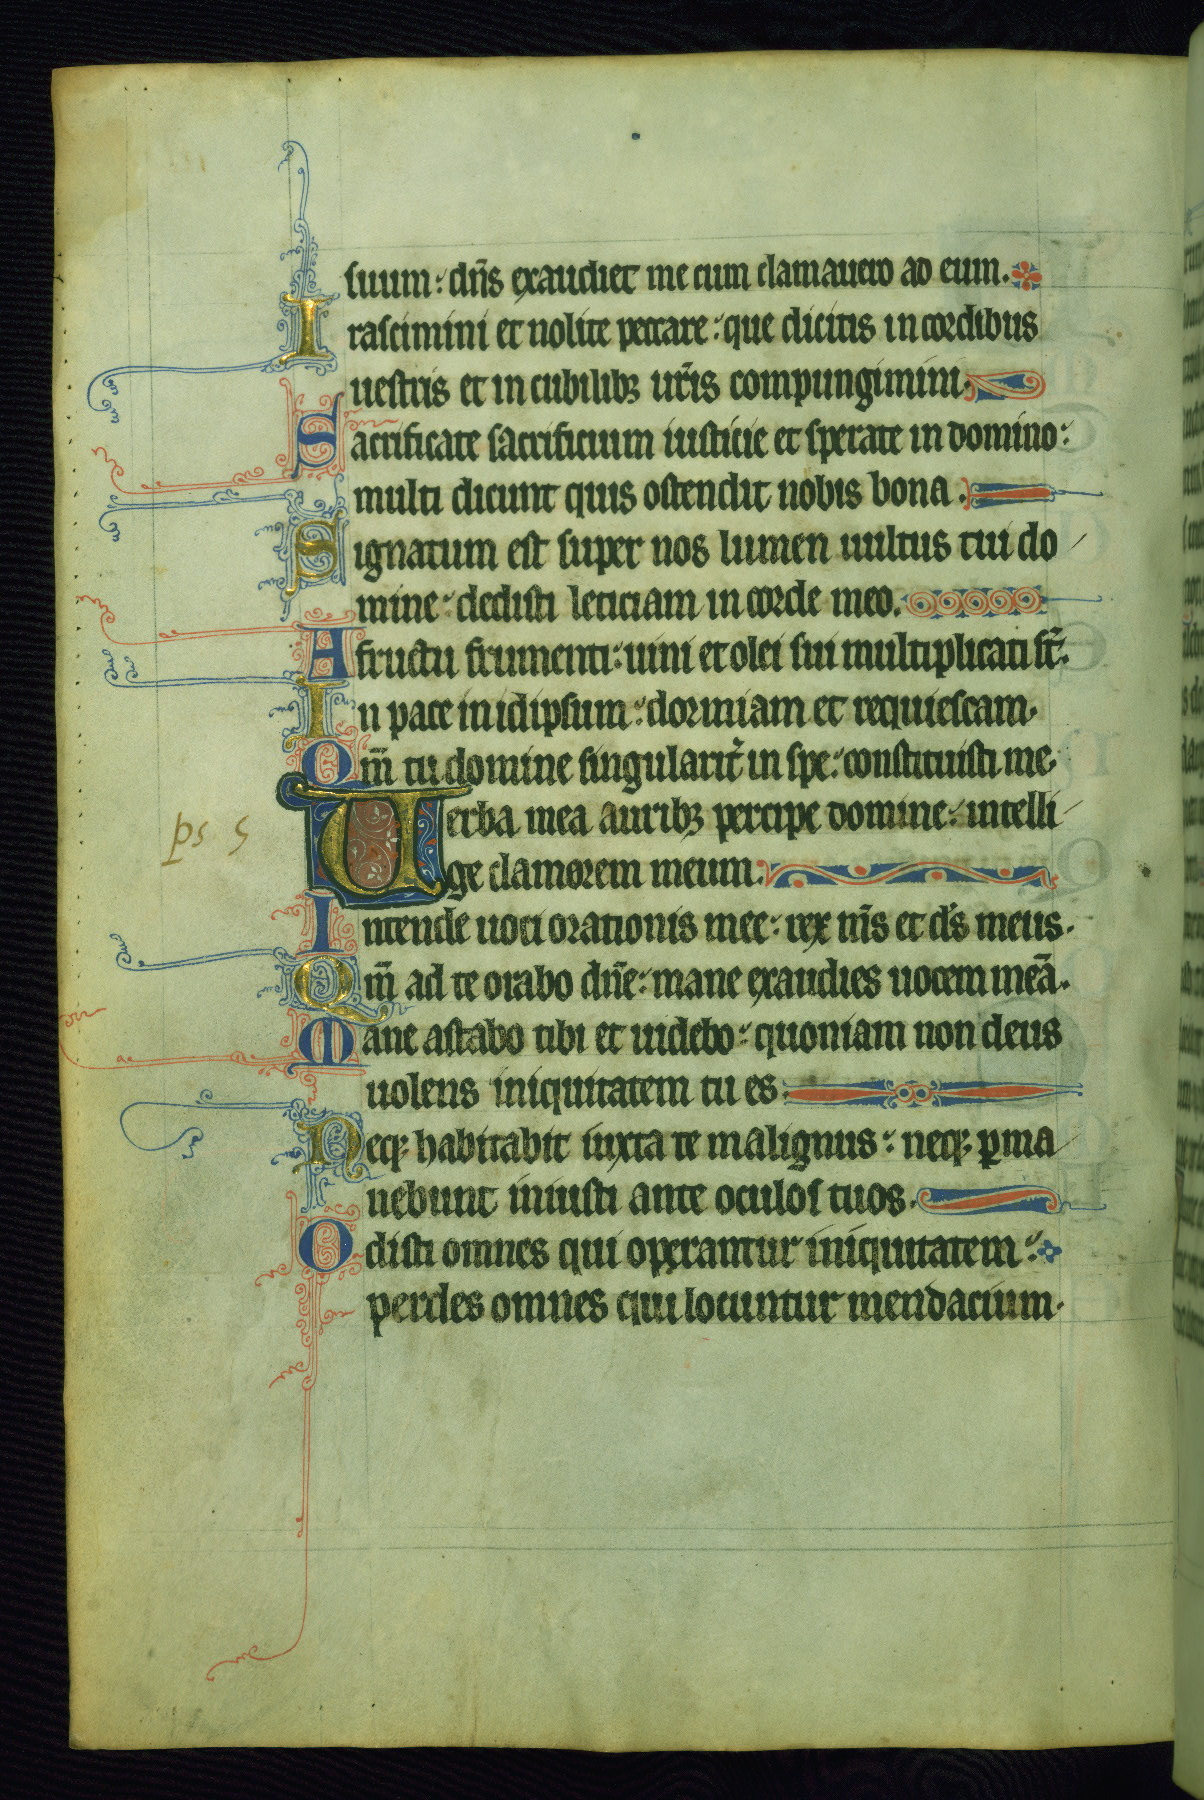 suum: dn̄s exaudiet me cum clamauero ad eum.
Irascimini et nolite peccare: que dicitis in cordibus
uestris et in cubilibꝫ ur̄is compungimini.
Sacrificate sacrificium iusticie et sperate in domino:
multi dicunt quis ostendit nobis bona.
Signatum est super nos lumen uultus tui do
mine: dedisti leticiam in corde meo.
A fructu frumenti: uini et olei sui multiplicati st̄.
In pace in idipsum: dormiam et requiescam.
Qm̄ tu domine singularit̄ in spe: constituisti me.
Uerba mea auribꝫ percipe domine: intelli
ps 5
ge clamorem meum.
Intende uoci orationis mee: rex m̄s et ds̄ meus.
Qm̄ ad te orabo dn̄e: mane exaudies uocem meā.
Mane astabo tibi et uidebo: quoniam non deus
uolens iniquitatem tu es.
Neqꝫ habitabit iuxta te malignus: neqꝫ ꝑma
nebunt iniusti ante oculos tuos.
Odisti omnes qui operantur iniquitatem:
perdes omnes qui locuntur mendacium.